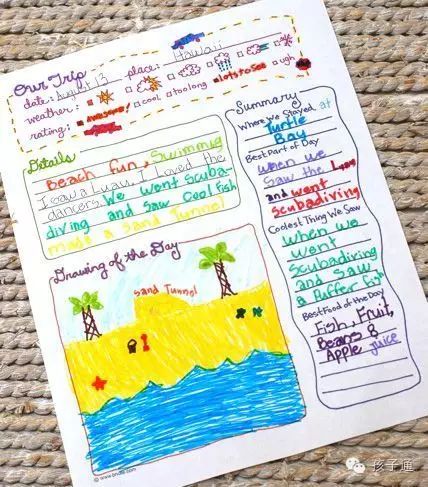 Our Trip
date: August 13 place: Hawaii
weather:
rating: awesome! cool too long lots to see ugh
Details
Beach fun, Swimming
I saw a Luau, I Loved the
dancers. We went Scuba-
diving and saw cool Fish
made a sand Tunnel
Drawing of the Day
Sand Tunnel
Summary
Where We Stayed at
Turtle
Bay
Best Part of Day
When we
saw the Luau
and went
scubadiving
Coolest Thing We Saw
When we
went
Scubadiving
and saw
a Puffer Fish
Best Food of the Day
Fish, Fruit,
Beans &
Apple juice
孩子通